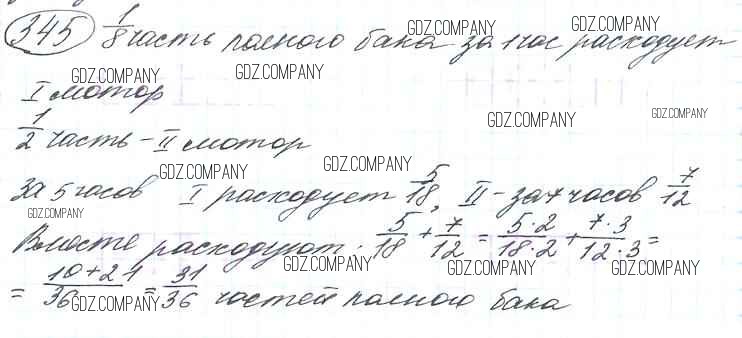 345 1/8 часть полного бака за 1 час расходует
GDZ.COMPANY GDZ.COMPANY
GDZ.COMPANY GDZ.COMPANY
I мотор
GDZ.COMPANY GDZ.COMPANY
1/2 часть - II мотор
GDZ.COMPANY GDZ.COMPANY
За 5 часов I расходует 5/18, II - за 7 часов 7/12
GDZ.COMPANY
Вместе расходуют: 5/18 + 7/12 = 5·2/18·2 + 7·3/12·3 =
GDZ.COMPANY GDZ.COMPANY GDZ.COMPANY
= 10+21/36 = 31/36 частей полного бака
GDZ.COMPANY